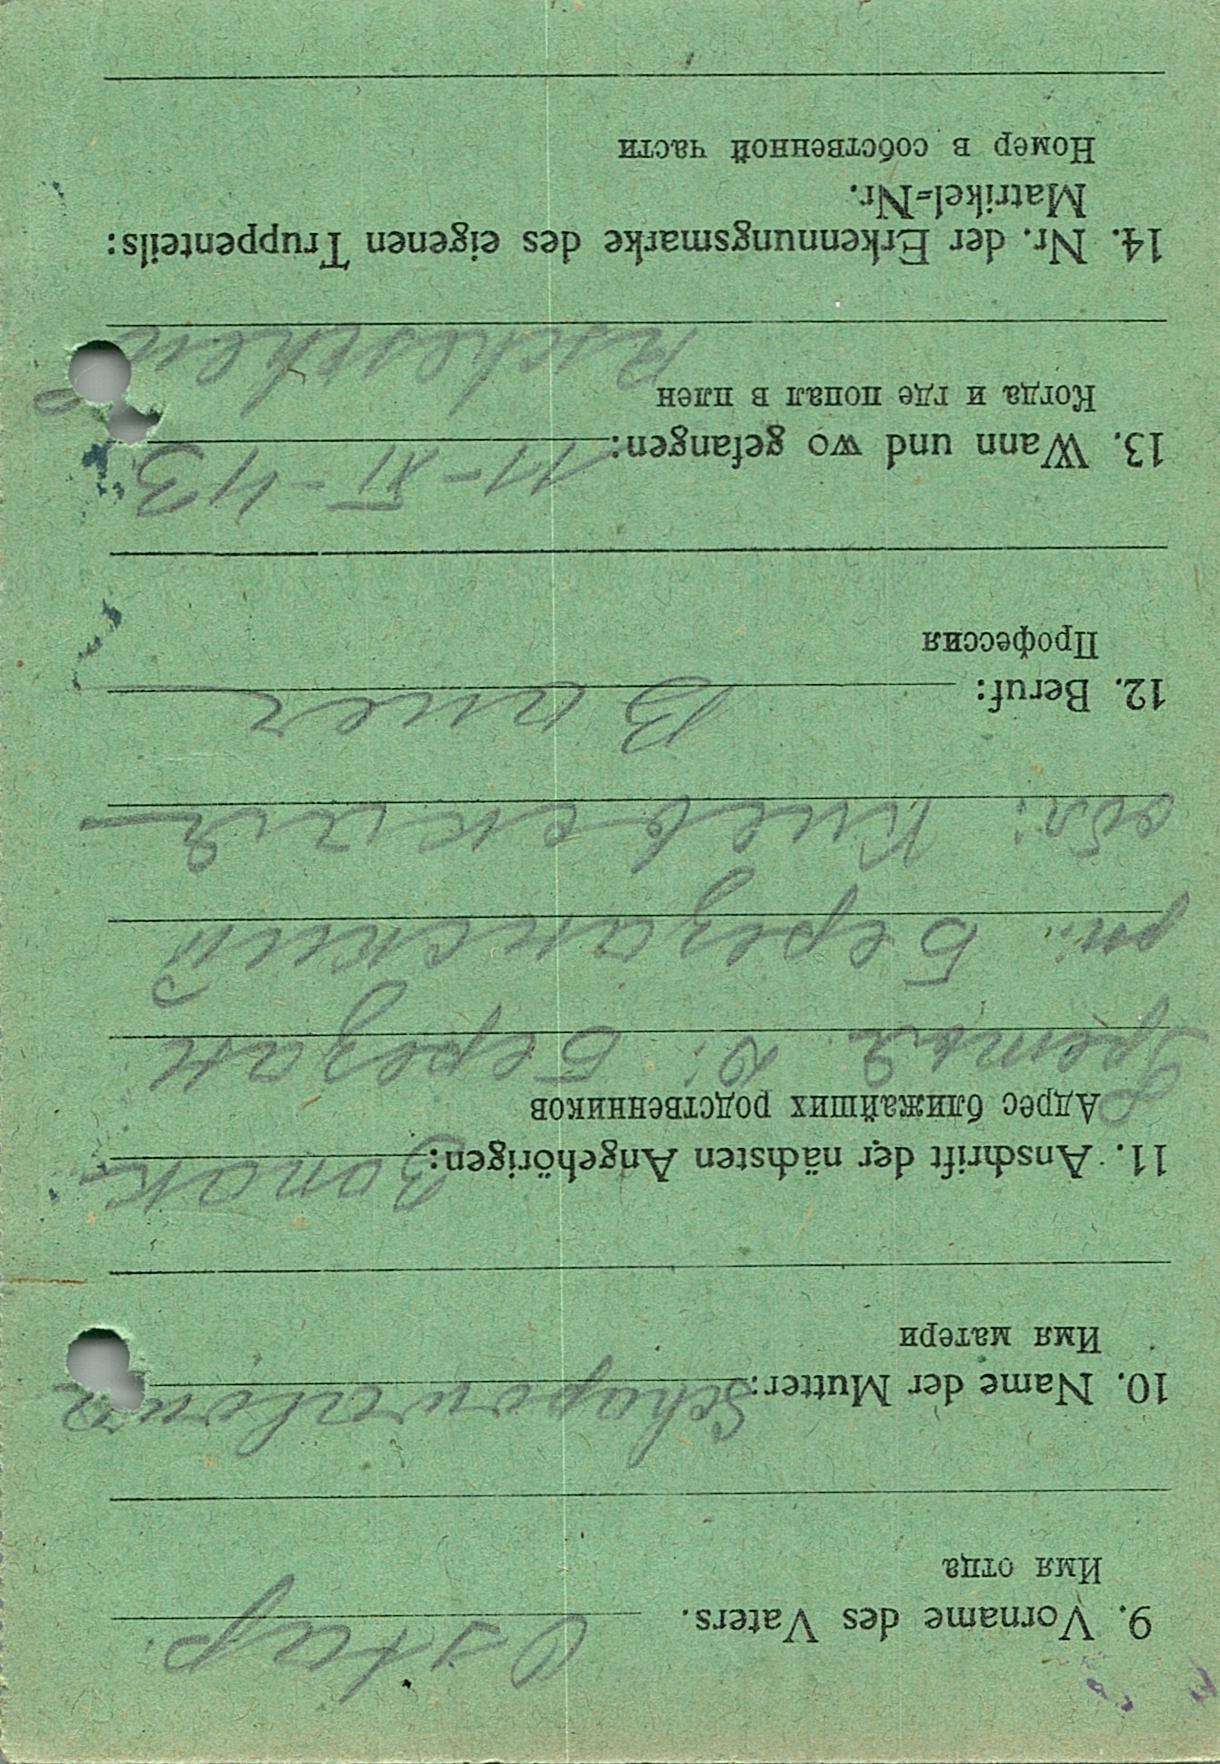 9. Vorname des Vaters. Ostap.
Имя отца
10. Name der Mutter: Schapowalowa
Имя матери
11. Anschrift der nächsten Angehörigen:
Адрес ближайших родственников
с: Березан
рн: Березанский
обл: Киевския
12. Beruf: Bauer
Профессия
13. Wann und wo gefangen: 11-XI-43
Когда и где попал в плен
14. Nr. der Erkennungsmarke des eigenen Truppenteils:
Matrikel=Nr.
Номер в собственной части